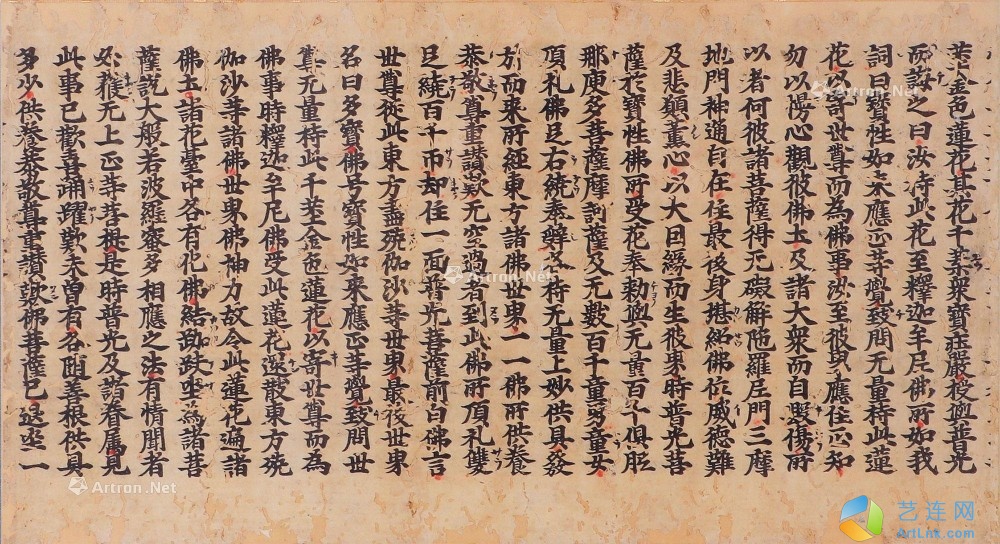 莖金色蓮花其花千莖衆寶莊嚴授與普光
而誨之曰汝持此花至釋迦牟尼佛所如我
詞曰寶性如來應正等覺致問无量持此蓮
花以寄世尊而為佛事汝至彼界應住正知
勿以慢心觀彼佛土及諸大衆而自毀傷所
以者何彼諸菩薩得无礙解陁羅尼門三摩
地門神通自在住最後身堪紹佛位威德難
及悲願薰心以大因緣而生彼界時普光菩
薩於寶性佛所受花奉勅與无量百千俱胝
那庾多菩薩摩訶薩及无數百千童男童女
頂礼佛足右繞奉辭各持无量上妙供具發
方而來所經東方諸佛世界一一佛所供養
恭敬尊重讃歎无空過者到此佛所頂礼雙
足繞百千帀却住一面普光菩薩前白佛言
世尊從此東方盡殑伽沙等世界最後世界
名曰多寶佛号寶性如來應正等覺致問世
尊无量持此千莖金色蓮花以寄世尊而為
佛事時釋迦牟尼佛受此蓮花還散東方殑
伽沙等諸佛世界佛神力故令此蓮花遍諸
佛土諸花臺中各有化佛結跏趺坐為諸菩
薩說大般若波羅蜜多相應之法有情聞者
必獲无上正等菩提是時普光及諸眷屬見
此事已歡喜踊躍歎未曾有各隨善根供具
多少供養恭敬尊重讃歎佛菩薩已退坐一
Artron.Net
Artron.Net
Artron.Net
Artron.Net
艺连网
ArtLink.com